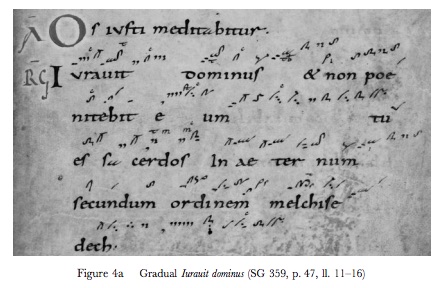 A Os iusti meditabitur.
RG Iurauit dominus & non poe
nitebit e um tu
es sa cerdos In ae ter num
secundum ordinem melchise
dech.
Figure 4a Gradual Iurauit dominus (SG 359, p. 47, ll. 11–16)